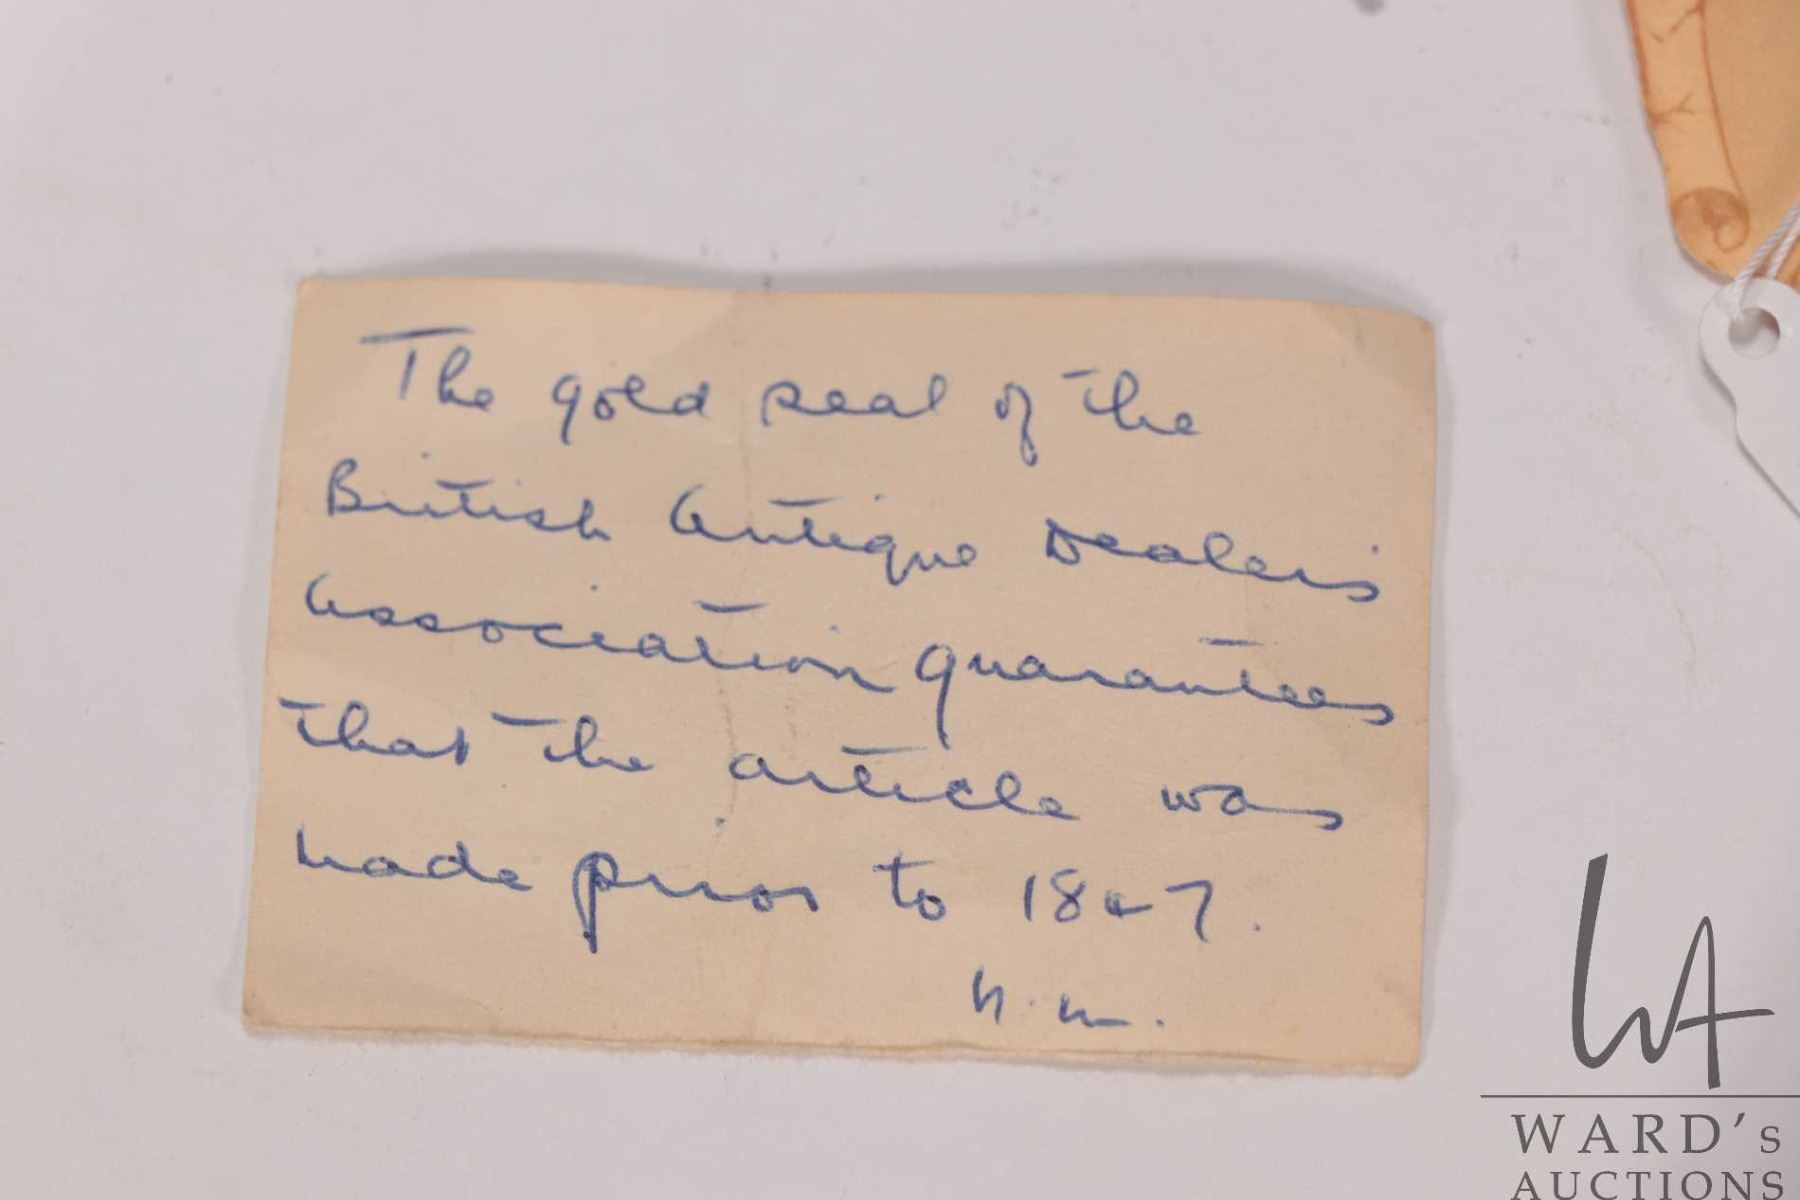 The gold seal of the
British Antique Dealers
Association guarantees
that the article was
made prior to 1847.
h.m.
WA
WARD's
AUCTIONS